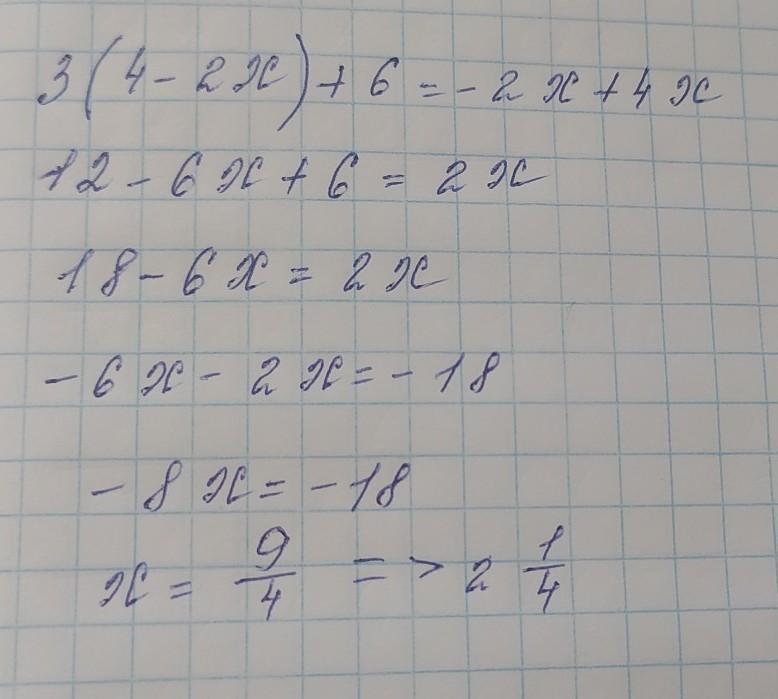 3(4-2x)+6=-2x+4x
12-6x+6=2x
18-6x=2x
-6x-2x=-18
-8x=-18
x=9/4 => 2 1/4